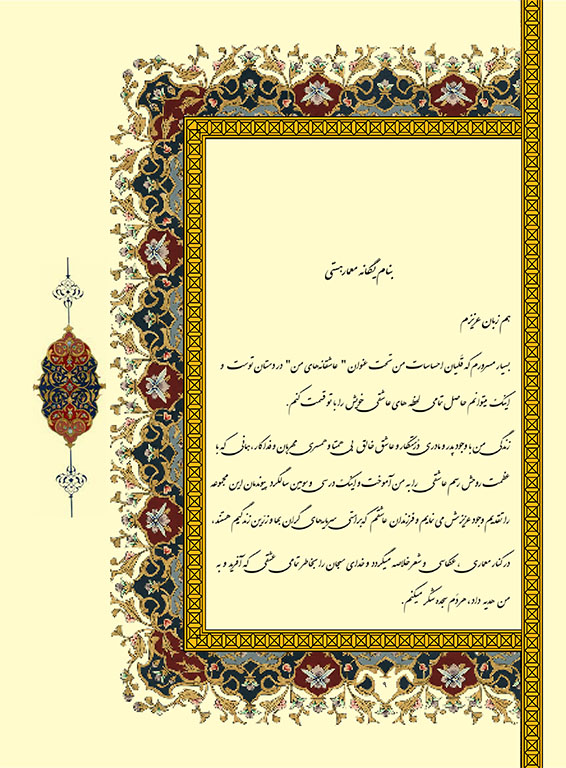 بنام یگانه معمار هستی
هم زبان عزیزم
بسیار مسرورم که غلیان احساسات من تحت عنوان " عاشقانه‌های من" در دستان توست و
اینک میتوانم حاصل تمامی لحظه های عاشقی خویش را با تو قسمت کنم.
زندگی من با وجود پدر و مادری درستکار و عاشق خالق بی همتا و همسری مهربان و فداکار، جانی که با
عظمت روحش رسم عاشقی را به من آموخت و اینک در سی و سومین سالگرد پیوندمان این مجموعه
را تقدیم وجود عزیزش می نمایم و فرزندان عاشقم که براستی سرمایه‌های گران بها و زرین زندگیم هستند،
در کنار معماری ، عکاسی و شعر خلاصه میگردد و خدای سبحان را بخاطر تمامی عشقی که آفرید و به
من هدیه داد، هر دم سجده شکر میکنم.